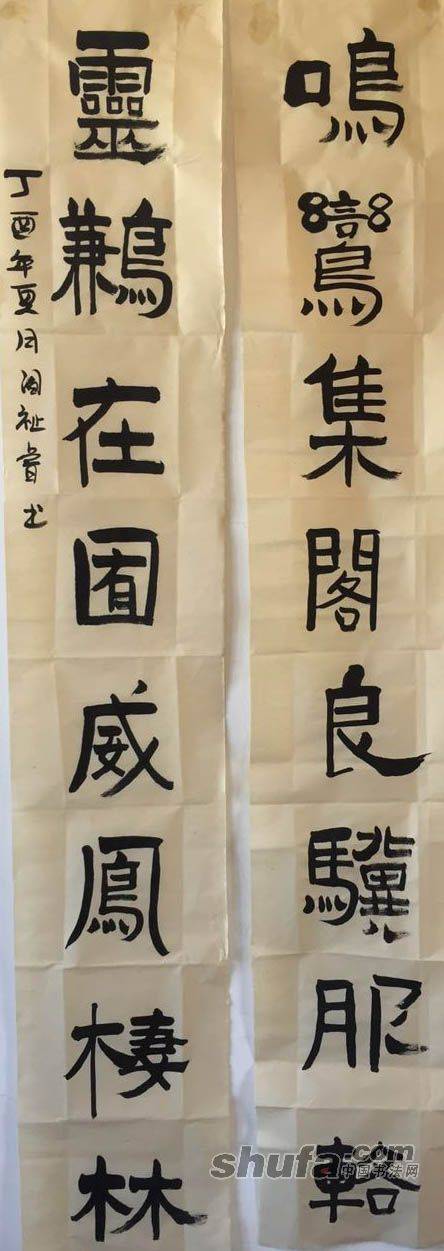 鳴鸞集閣良驥服輅
靈鶼在囿威鳳棲林
丁酉年夏月祉书
shufa.com
中国书法网